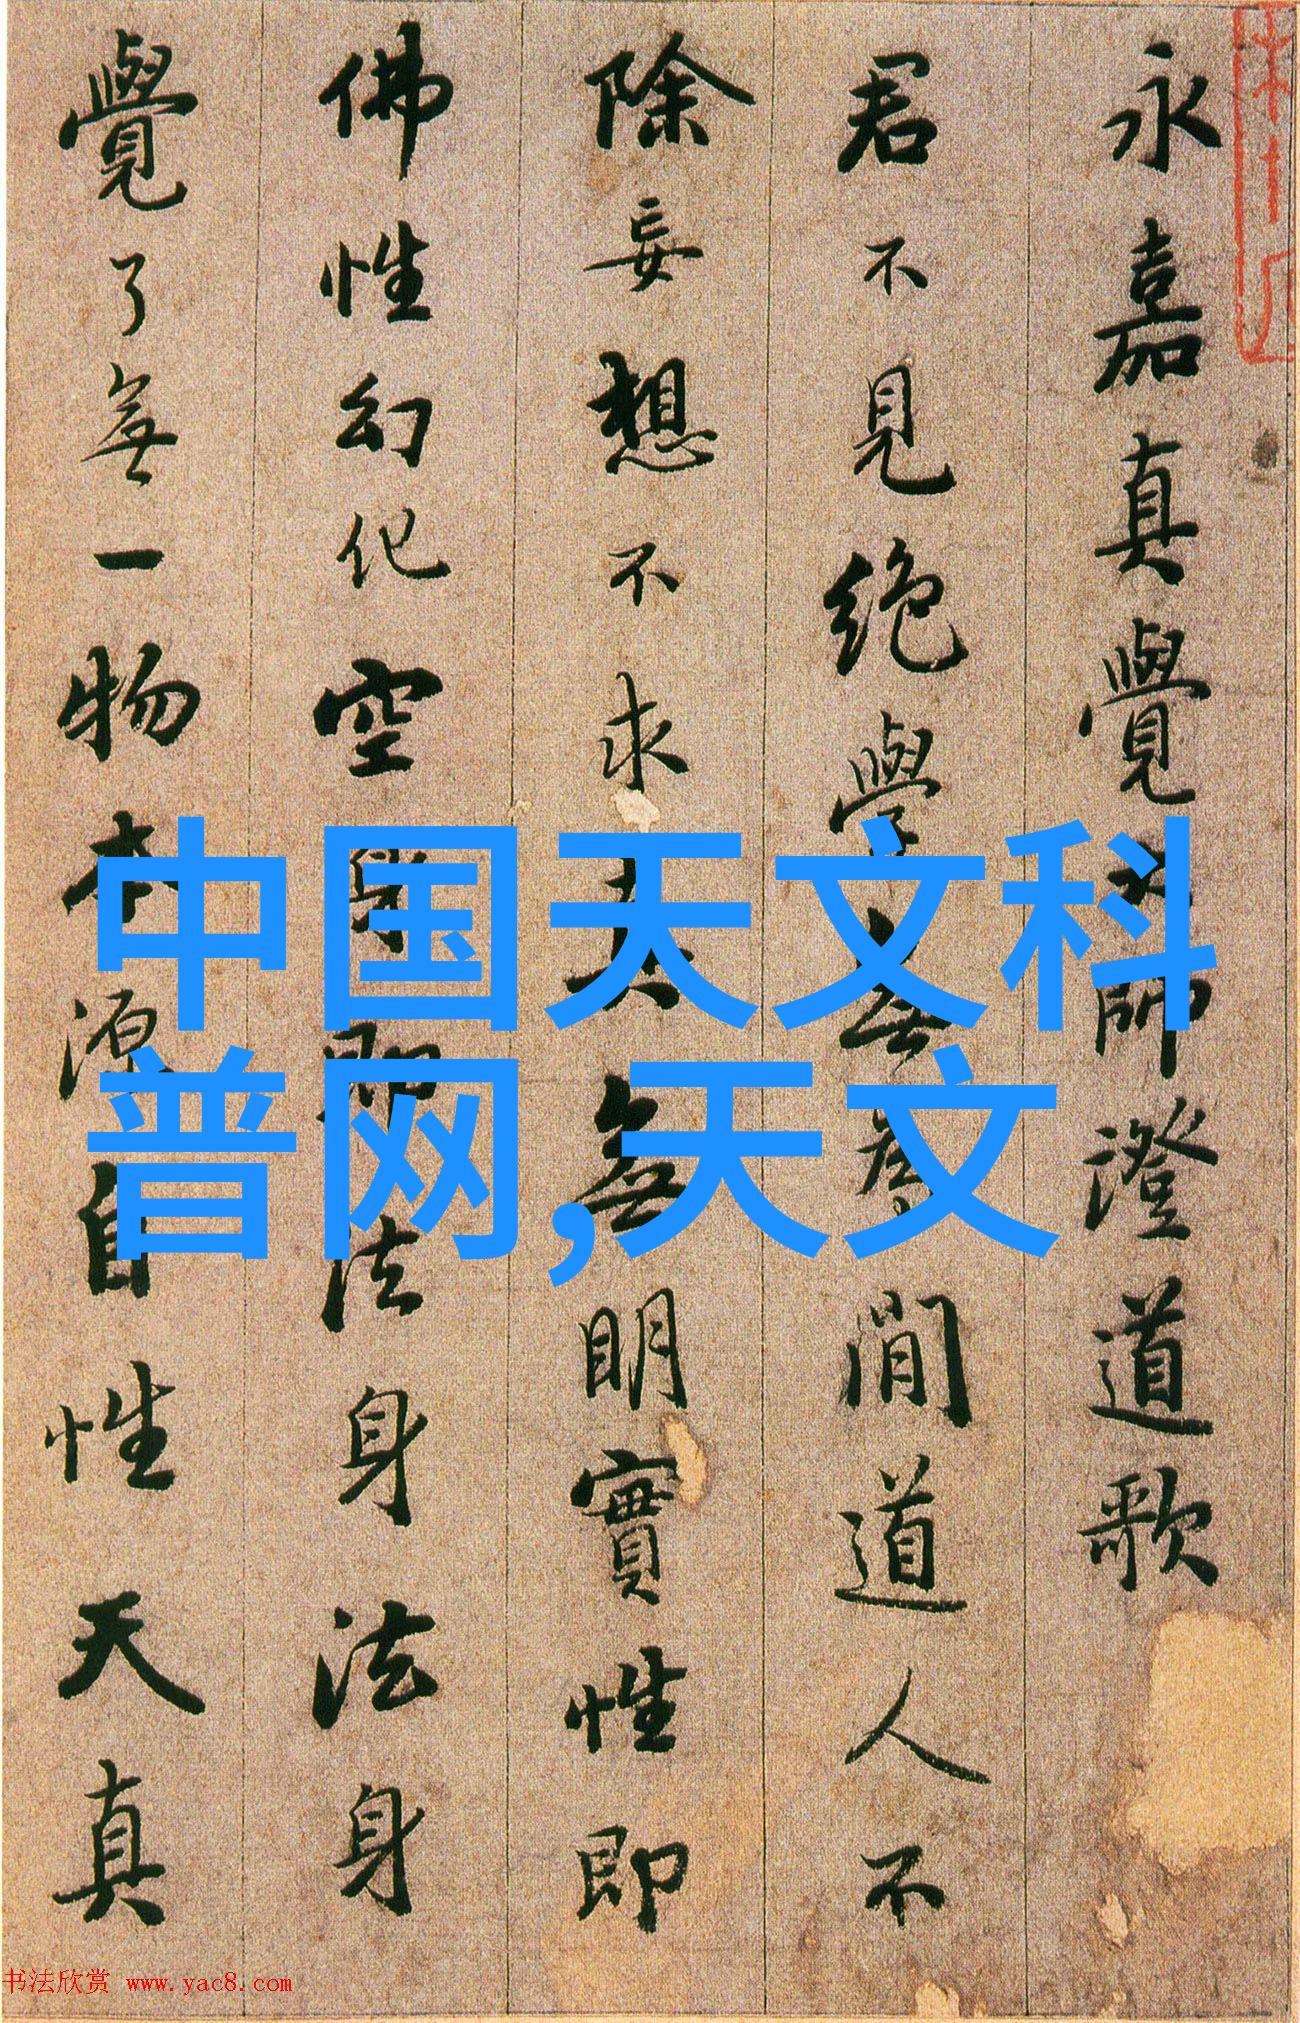 永嘉真覺大師澄道歌
君不見絶學無為閒道人不
除妄想不求真無明實性即
佛性幻化空身即法身法身
覺了無一物本源自性天真
中国天文科
普网,天文
书法欣赏 www.yac8.com